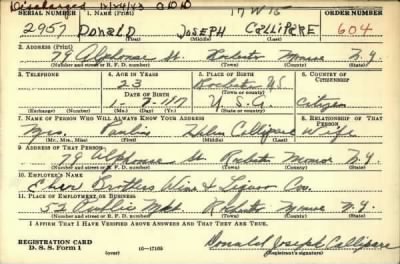 Discharged 12/24/43
SERIAL NUMBER 1. NAME (Print) ORDER NUMBER
2957 DONALD JOSEPH CALLIPARE 604
(First) (Middle) (Last)
2. ADDRESS (Print)
79 Alphonse St. Rochester Monroe N.Y.
(Number and street or R. F. D. number) (Town) (County) (State)
3. TELEPHONE 4. AGE IN YEARS 5. PLACE OF BIRTH 6. COUNTRY OF CITIZENSHIP
23 Rochester N.Y.
DATE OF BIRTH (Town or county)
1-7-1917 U.S.A. Citizen
(Exchange) (Number) (Mo.) (Day) (Yr.) (State or country)
7. NAME OF PERSON WHO WILL ALWAYS KNOW YOUR ADDRESS 8. RELATIONSHIP OF THAT PERSON
Mrs. Pauline Helen Callipare Wife
(Mr., Mrs., Miss) (First) (Middle) (Last)
9. ADDRESS OF THAT PERSON
79 Alphonse St. Rochester Monroe N.Y.
(Number and street or R. F. D. number) (Town) (County) (State)
10. EMPLOYER'S NAME
Eber Brothers Wine & Liquor Co.
11. PLACE OF EMPLOYMENT OR BUSINESS
52 Public Mkt. Rochester Monroe N.Y.
(Number and street or R. F. D. number) (Town) (County) (State)
I AFFIRM THAT I HAVE VERIFIED ABOVE ANSWERS AND THAT THEY ARE TRUE.
REGISTRATION CARD
D. S. S. Form 1 (over) 16—17105
Donald Joseph Callipare
(Registrant's signature)